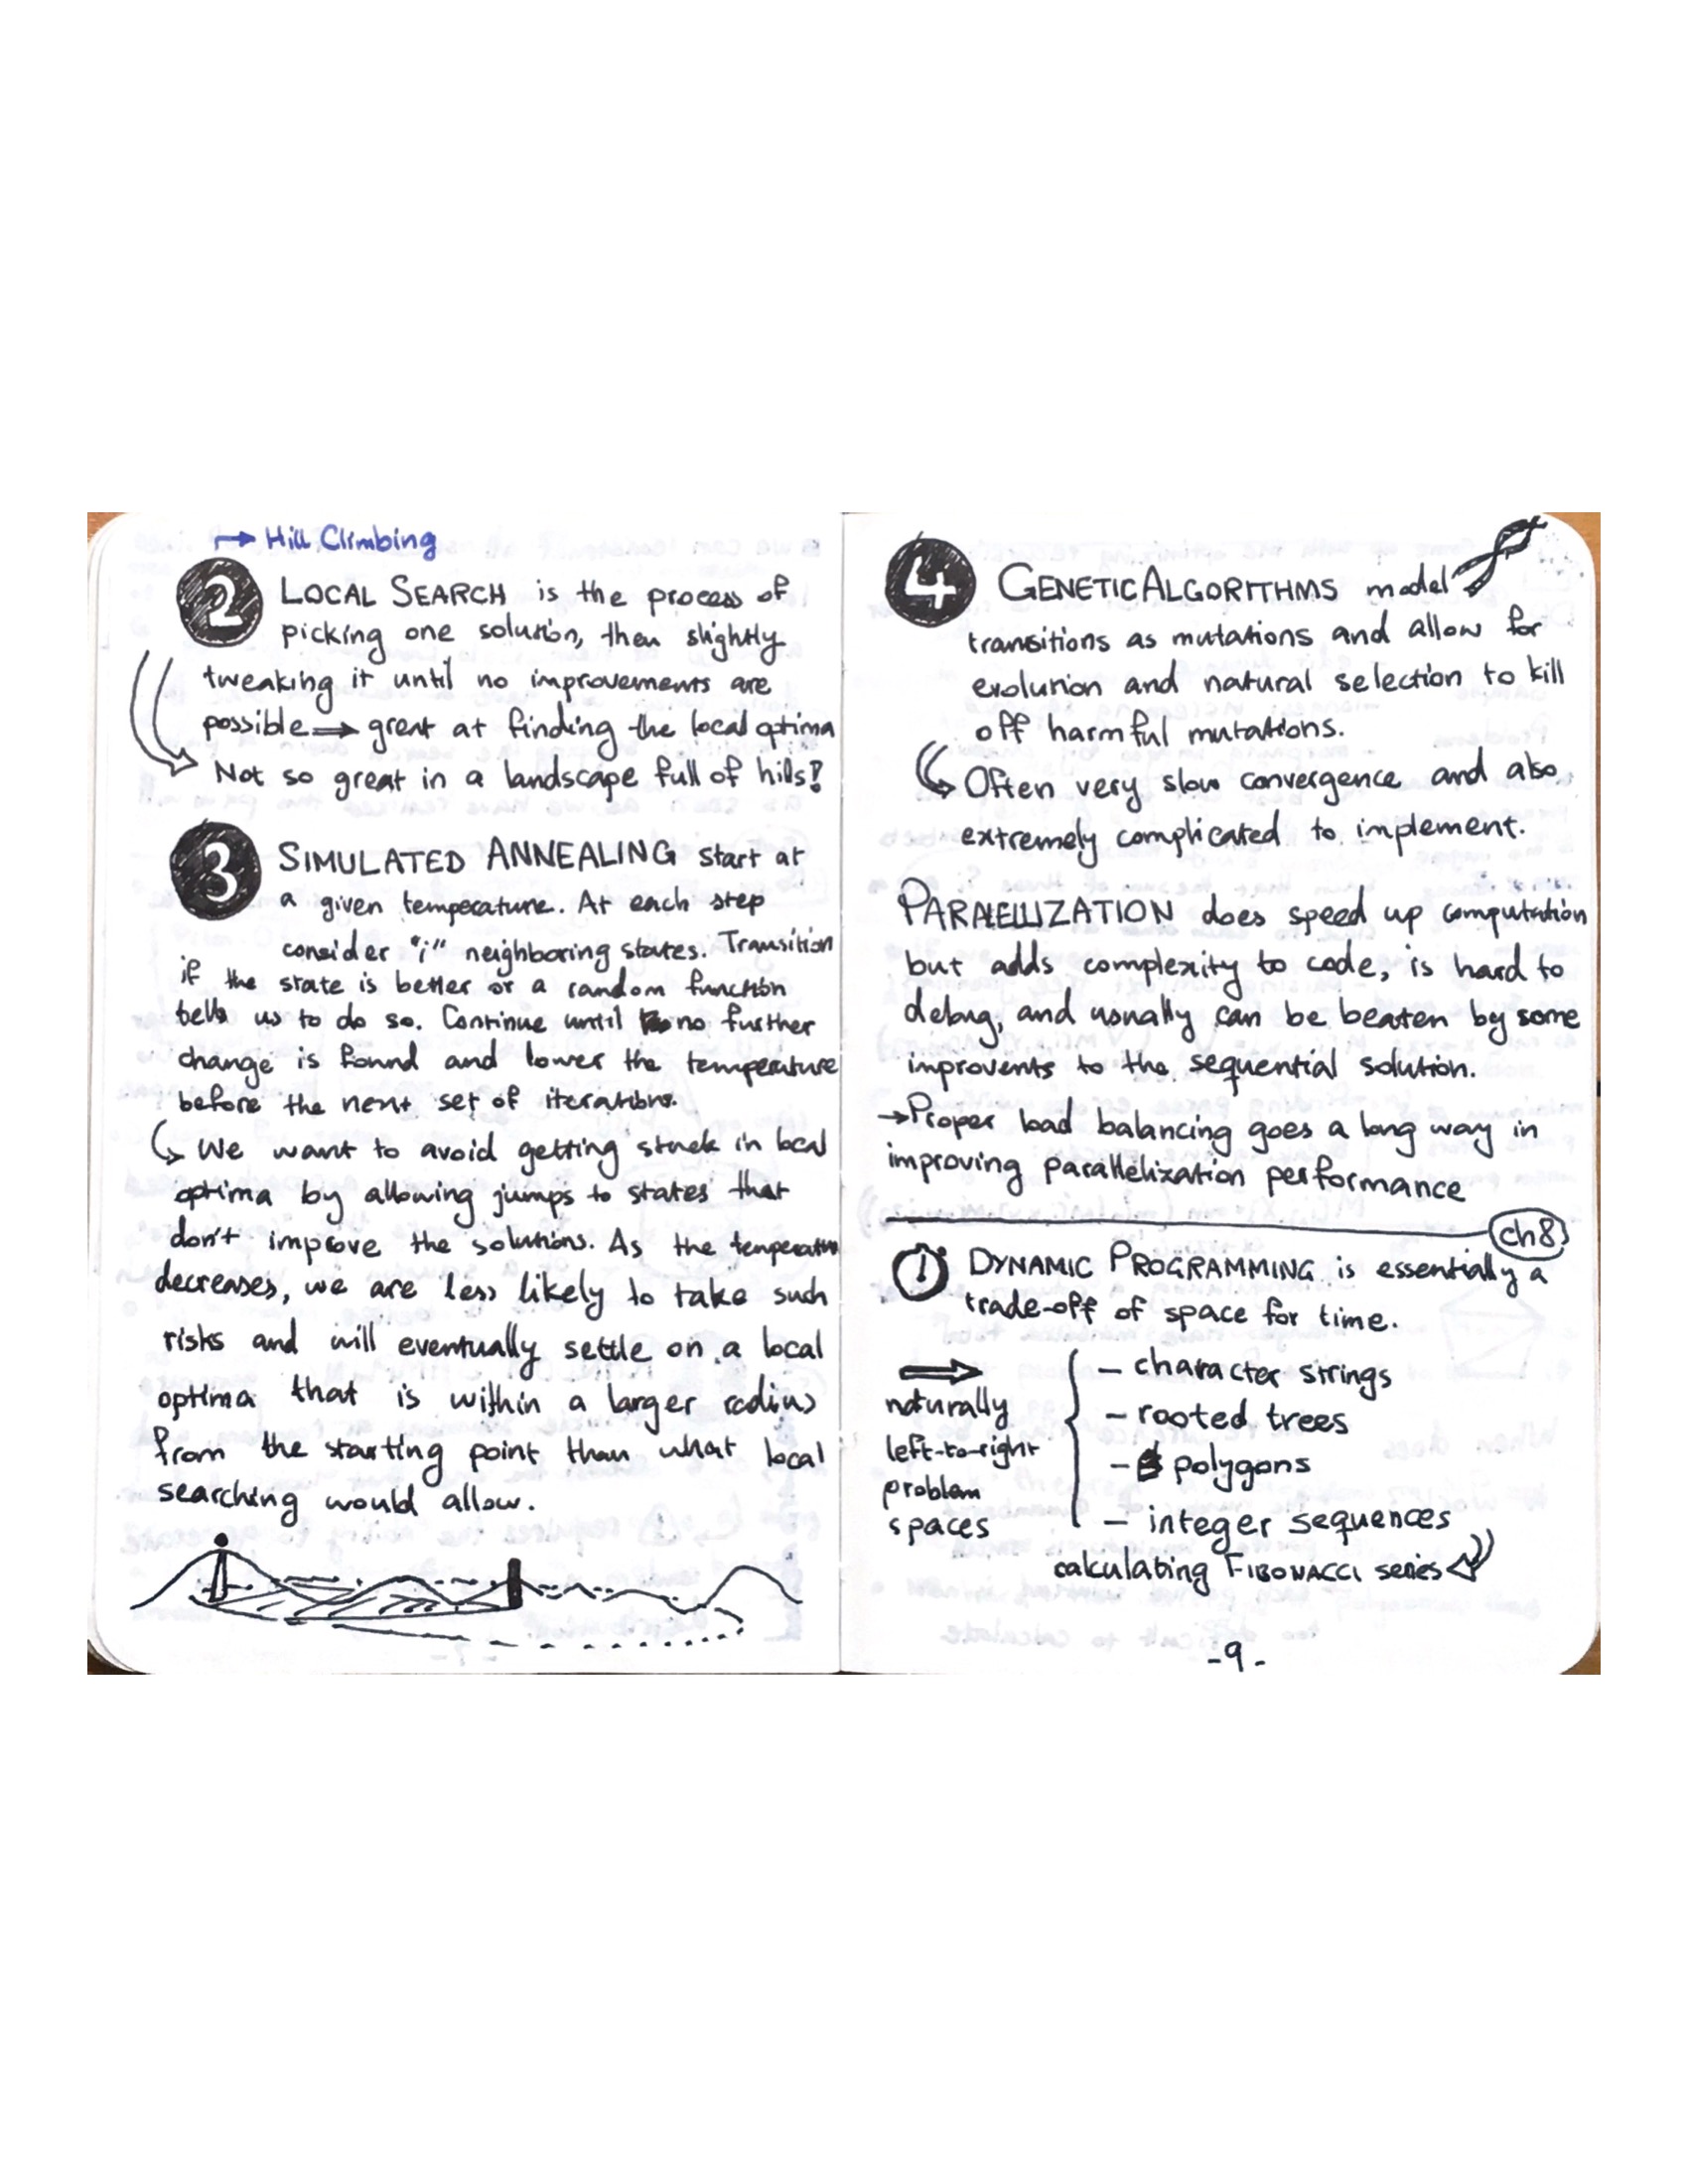 → Hill Climbing
2 LOCAL SEARCH is the process of
picking one solution, then slightly
tweaking it until no improvements are
possible ⇒ great at finding the local optima
Not so great in a landscape full of hills!
3 SIMULATED ANNEALING start at
a given temperature. At each step
consider "i" neighboring states. Transition
if the state is better or a random function
tells us to do so. Continue until no further
change is found and lower the temperature
before the next set of iterations.
We want to avoid getting stuck in local
optima by allowing jumps to states that
don't improve the solutions. As the temperature
decreases, we are less likely to take such
risks and will eventually settle on a local
optima that is within a larger radius
from the starting point than what local
searching would allow.
4 GENETIC ALGORITHMS model
transitions as mutations and allow for
evolution and natural selection to kill
off harmful mutations.
Often very slow convergence and also
extremely complicated to implement.
PARALLELLIZATION does speed up computation
but adds complexity to code, is hard to
debug, and usually can be beaten by some
improvents to the sequential solution.
→ Proper load balancing goes a long way in
improving parallelization performance
ch8
DYNAMIC PROGRAMMING is essentially a
trade-off of space for time.
⇒
naturally
left-to-right
problem
spaces
- character strings
- rooted trees
- polygons
- integer sequences
calculating FIBONACCI series
-9-